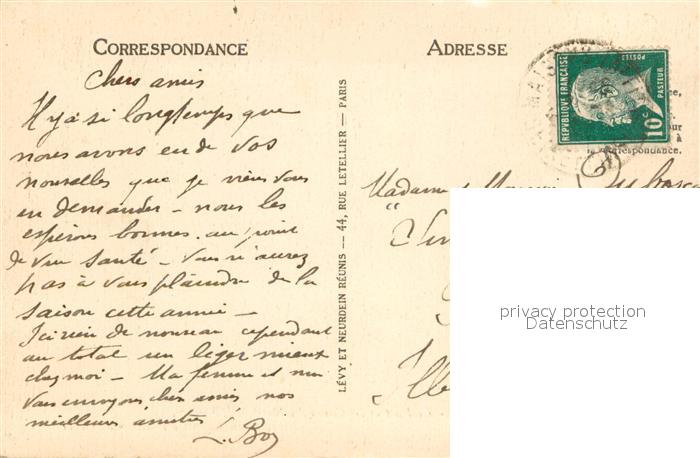 CORRESPONDANCE
Chers amis
Il y a si longtemps que
nous avons eu de vos
nouvelles que je viens vous
en demander – nous les
espérons bonnes au point
de vue santé – Vous n'aurez
pas à vous plaindre de la
saison cette année –
Ici rien de nouveau cependant
au total un léger mieux
chez moi – Ma femme et moi
vous envoyons chers amis nos
meilleures amitiés
LÉVY ET NEURDEIN RÉUNIS — 44, RUE LETELLIER — PARIS
ADRESSE
REPVBLIQVE FRANÇAISE
POSTES
PASTEUR
10c
la correspondance.
Madame
privacy protection
Datenschutz